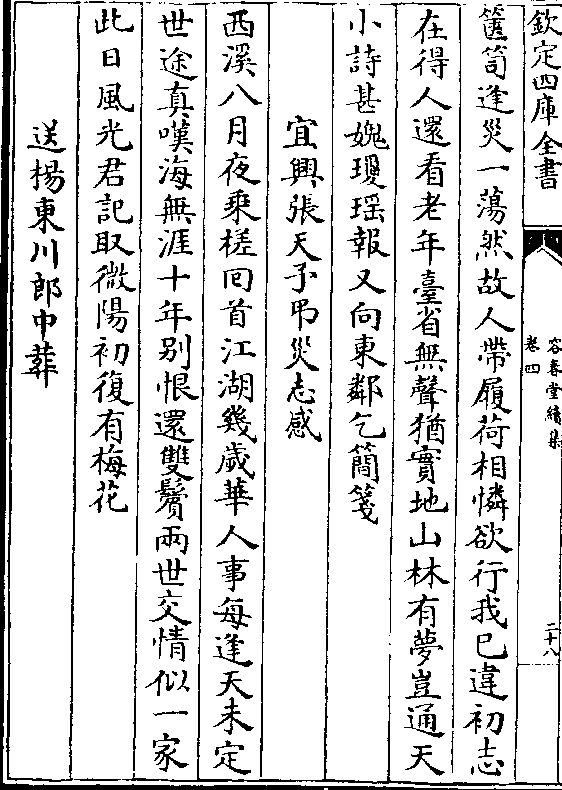 欽定四庫全書
容春堂續集
卷四
二十八
篋笥逢災一蕩然故人帶履荷相憐欲行我已違初志
在得人還看老年臺省無聲猶實地山林有夢豈通天
小詩甚媿瓊瑶報又向東鄰乞簡箋
宜興張天予弔災志感
西溪八月夜乘槎回首江湖幾歲華人事每逢天未定
世途真嘆海無涯十年别恨還雙鬢兩世交情似一家
此日風光君記取微陽初復有梅花
送楊東川郎中葬